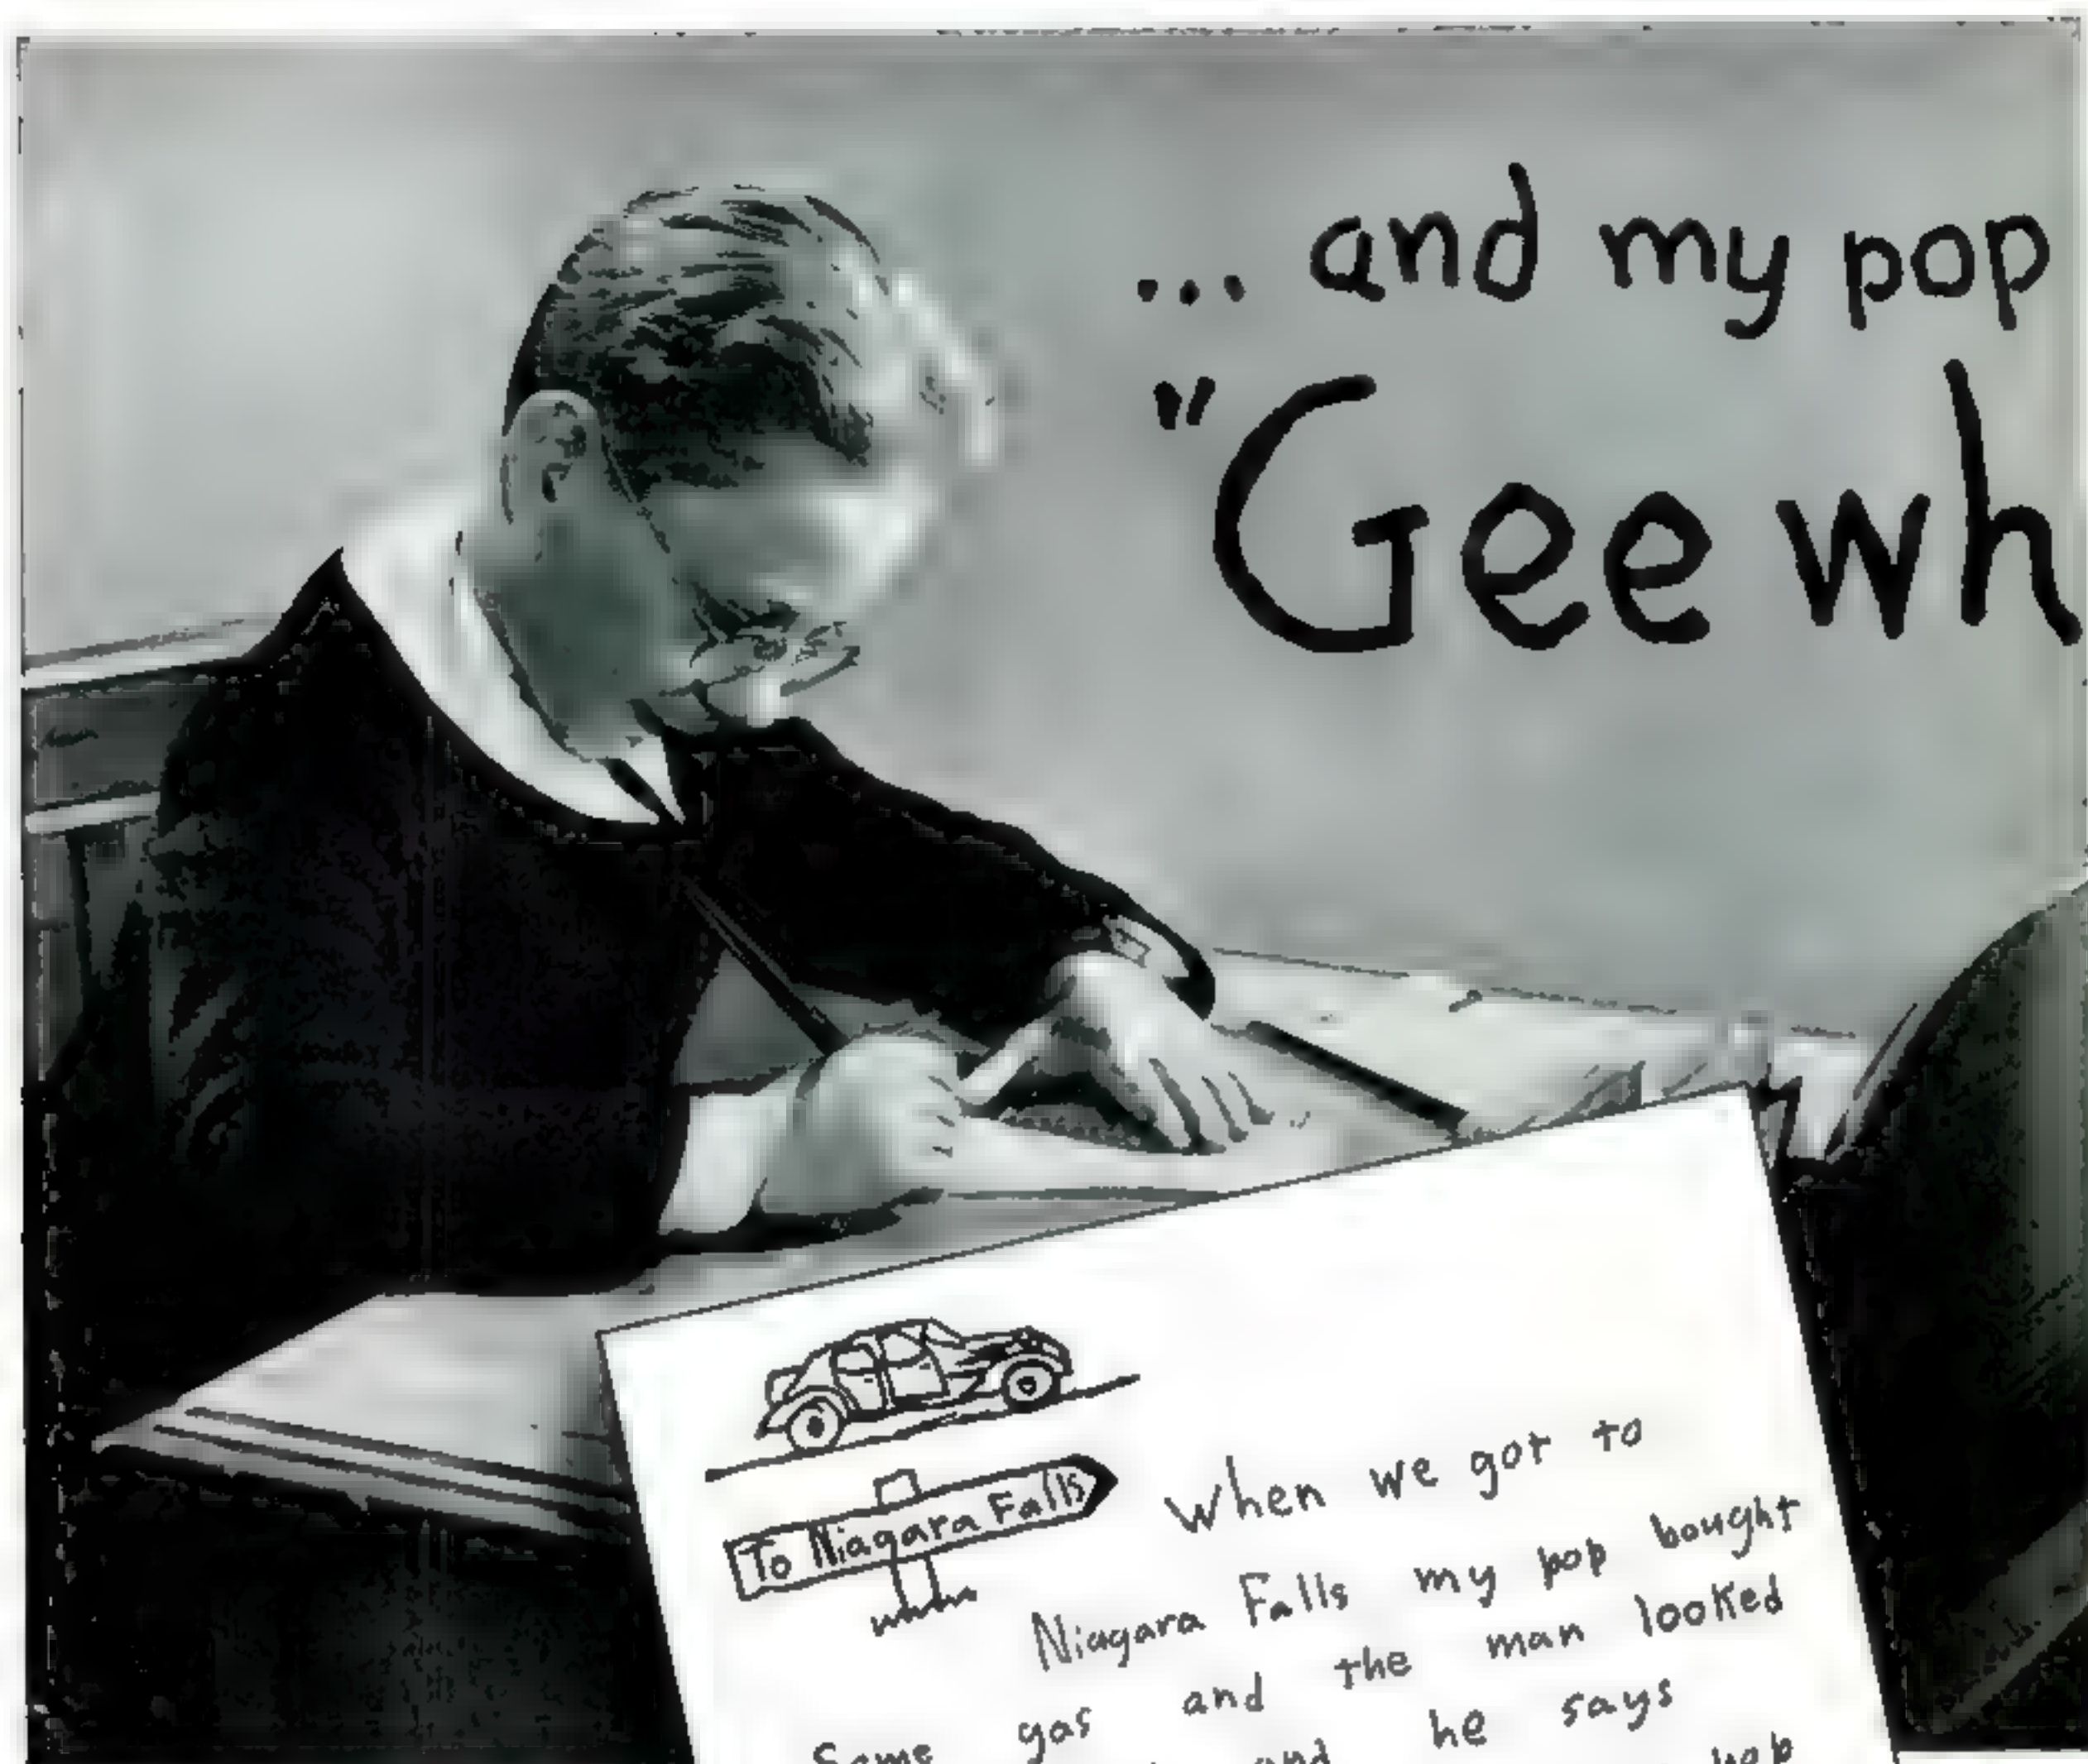 ... and my pop
"Gee wh
To Niagara Falls
When we got to
Niagara Falls my pop bought
Some gas and the man looked
and he says
pop